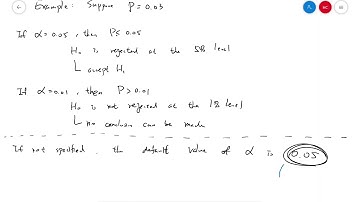 Example: Suppose P = 0.03
If α = 0.05, then P ≤ 0.05
H₀ is rejected at the 5% level
accept H₁
If α = 0.01, then P > 0.01
H₀ is not rejected at the 1% level
no conclusion can be made
If not specified, the default value of α is 0.05